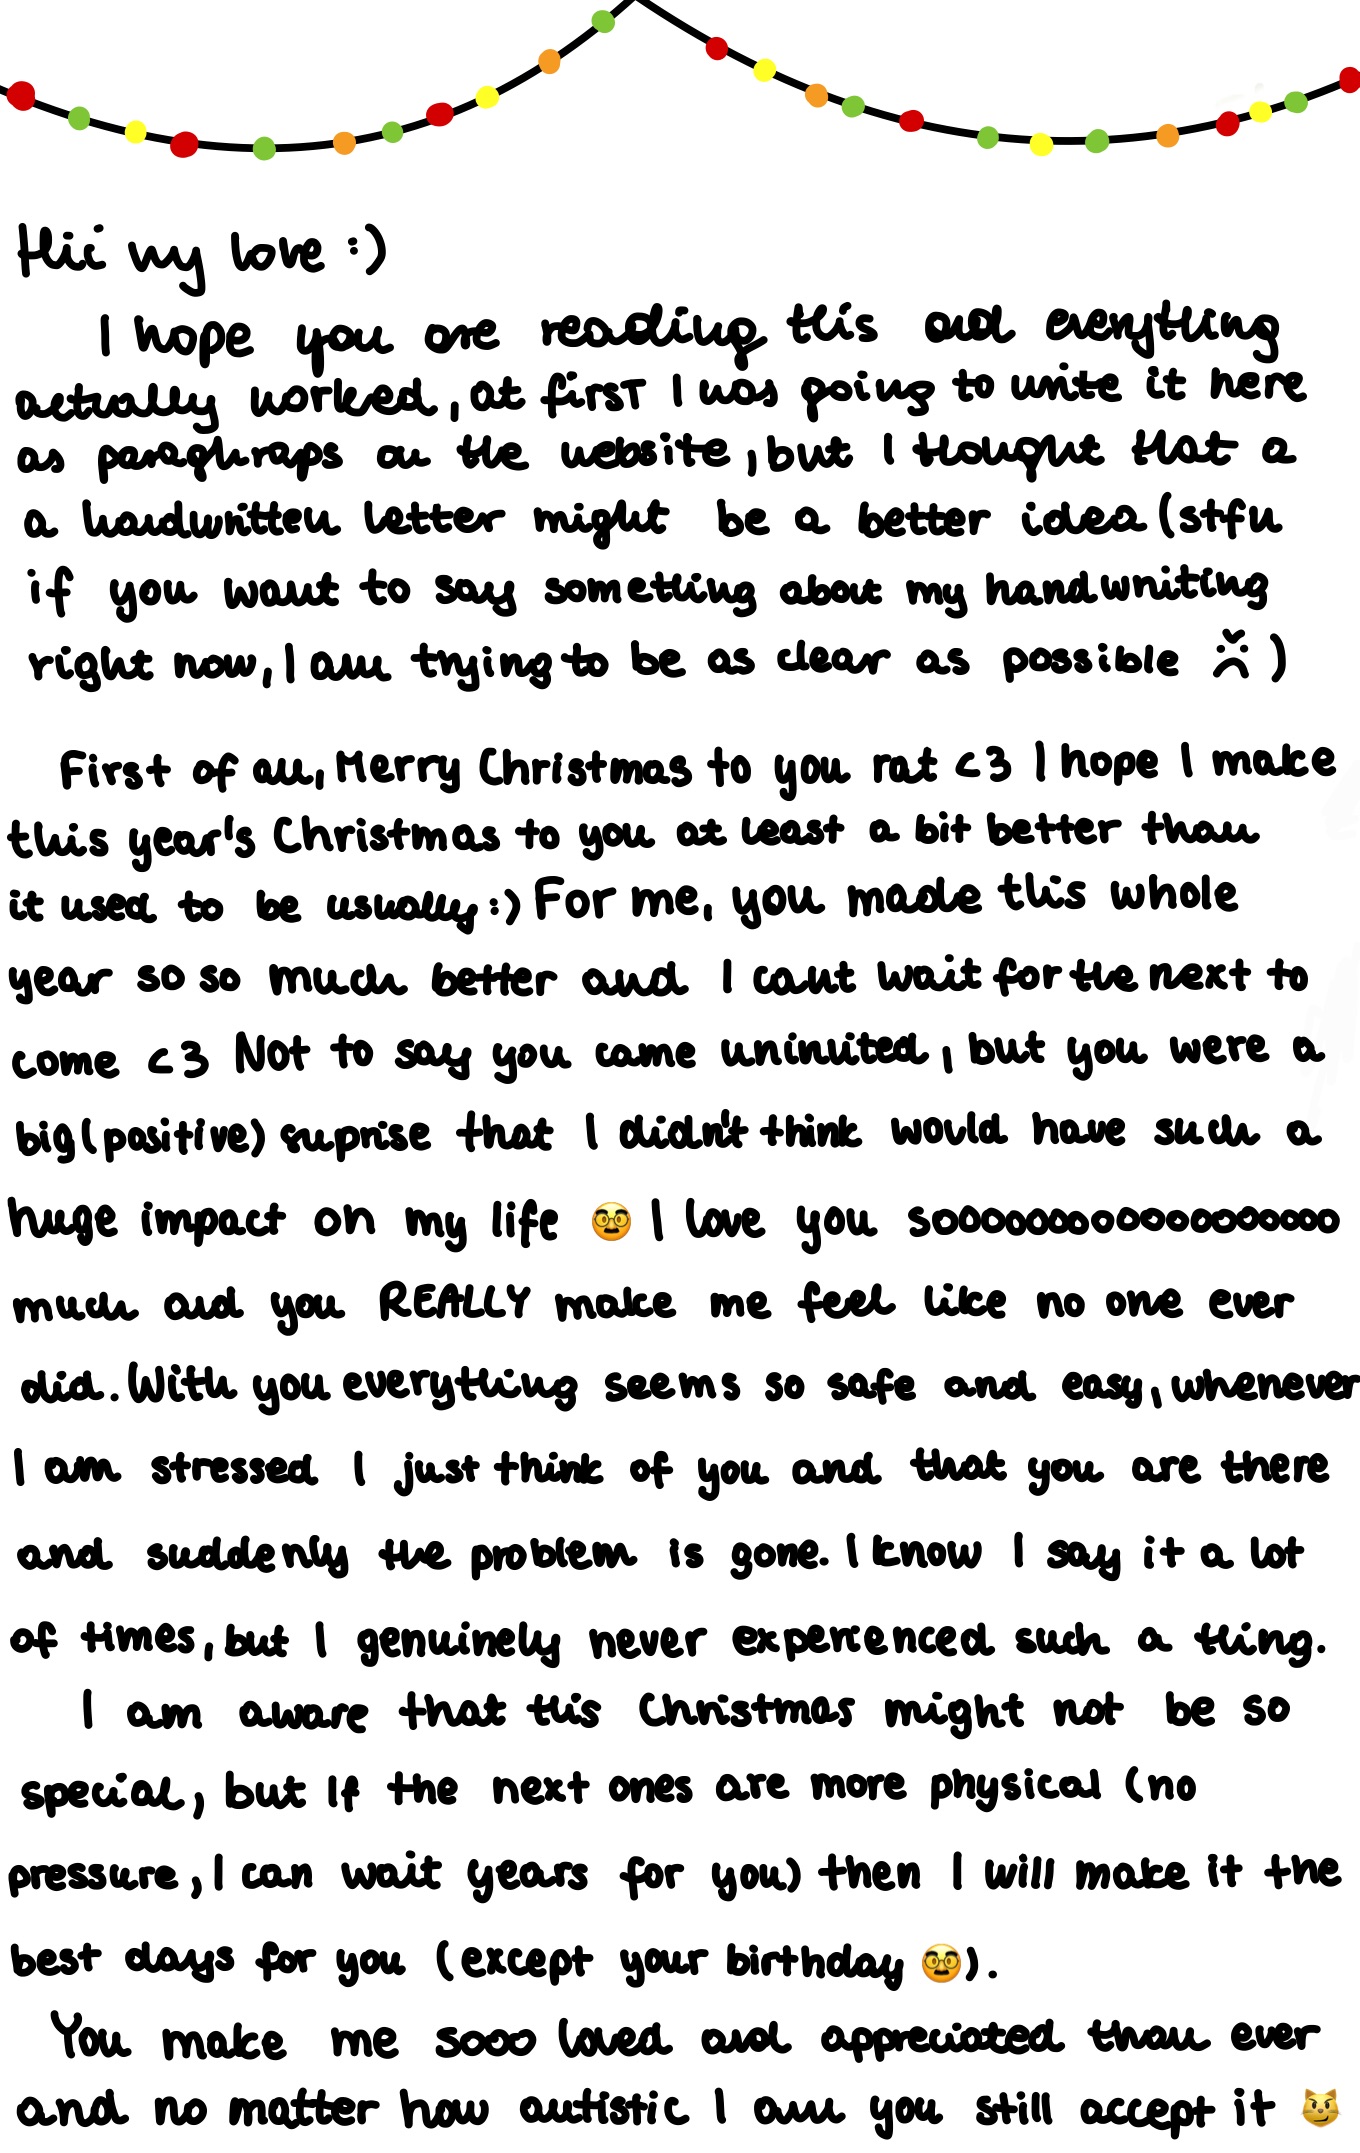 Hii my love :)
I hope you are reading this and everything
actually worked, at first I was going to write it here
as paraghraps on the website, but I thought that a
a handwritten letter might be a better idea (stfu
if you want to say something about my handwriting
right now, I am trying to be as clear as possible ☹)
First of all, Merry Christmas to you rat <3 I hope I make
this year's Christmas to you at least a bit better than
it used to be usually :) For me, you made this whole
year so so much better and I cant wait for the next to
come <3 Not to say you came uninvited, but you were a
big (positive) suprise that I didn't think would have such a
huge impact on my life 🥸 I love you soooooooooooooooooooo
much and you REALLY make me feel like no one ever
did. With you everything seems so safe and easy, whenever
I am stressed I just think of you and that you are there
and suddenly the problem is gone. I know I say it a lot
of times, but I genuinely never experienced such a thing.
I am aware that this Christmas might not be so
special, but If the next ones are more physical (no
pressure, I can wait years for you) then I will make it the
best days for you (except your birthday 🥸).
You make me sooo loved and appreciated than ever
and no matter how autistic I am you still accept it 😼